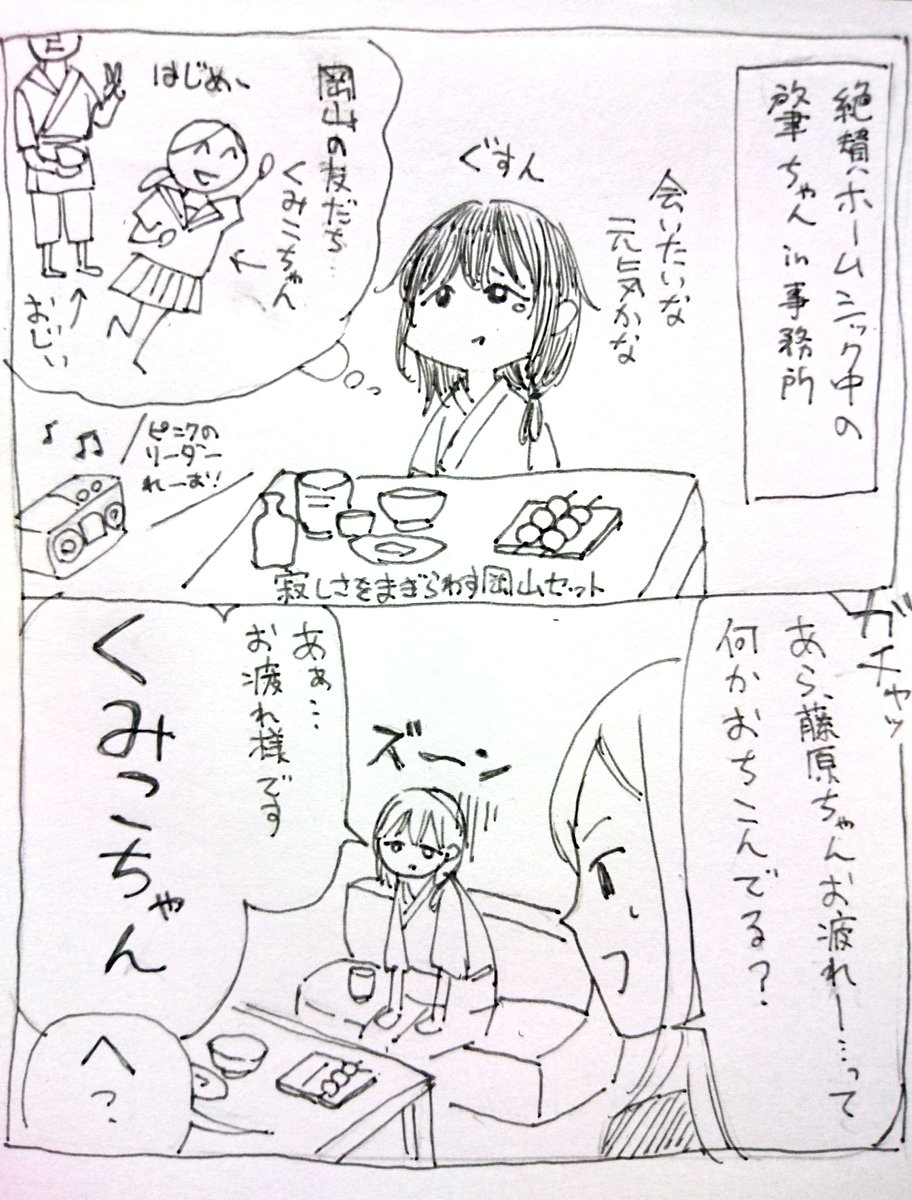 絶賛ホームシック中の
肇ちゃん in 事務所
会いたいな
元気かな
ぐすん
岡山の友だち
くみこちゃん
はじめ〜
おじい
ピンクの
リーダー
れーお!!
寂しさをまぎらわす岡山セット
ガチャッ
あら、藤原ちゃんお疲れー…って
何かおちこんでる?
ズーン
あぁ…
お疲れ様です
くみこちゃん
へ?